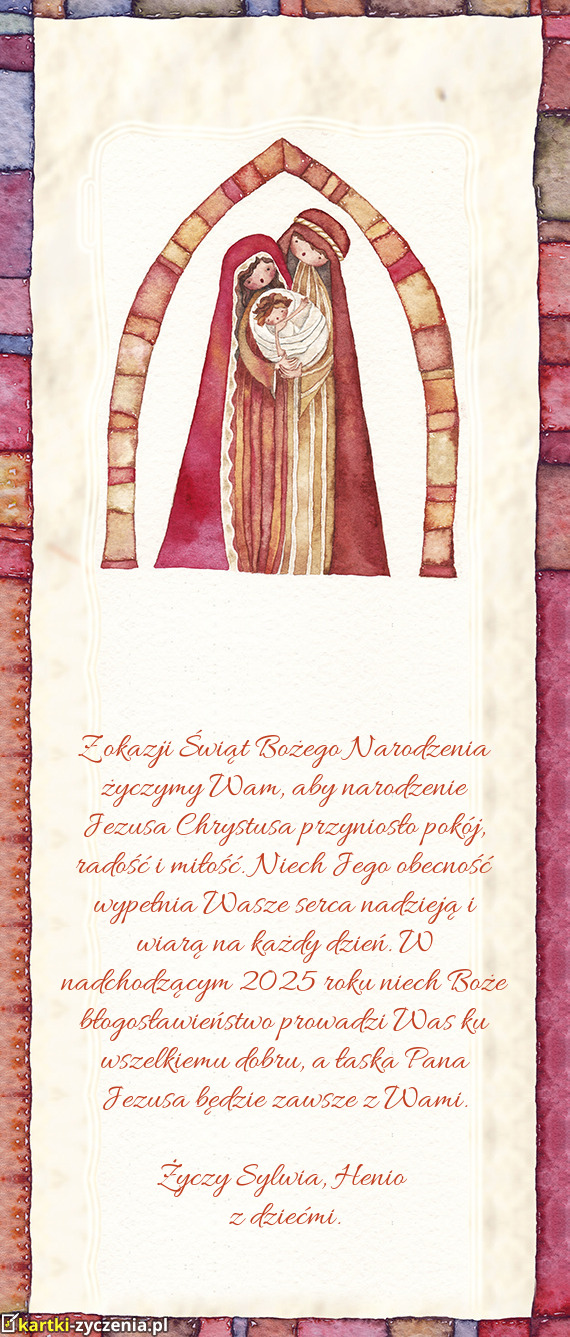 Z okazji Świąt Bożego Narodzenia
życzymy Wam, aby narodzenie
Jezusa Chrystusa przyniosło pokój,
radość i miłość. Niech Jego obecność
wypełnia Wasze serca nadzieją i
wiarą na każdy dzień. W
nadchodzącym 2025 roku niech Boże
błogosławieństwo prowadzi Was ku
wszelkiemu dobru, a łaska Pana
Jezusa będzie zawsze z Wami.
Życzy Sylwia, Henio
z dziećmi.
kartki-zyczenia.pl